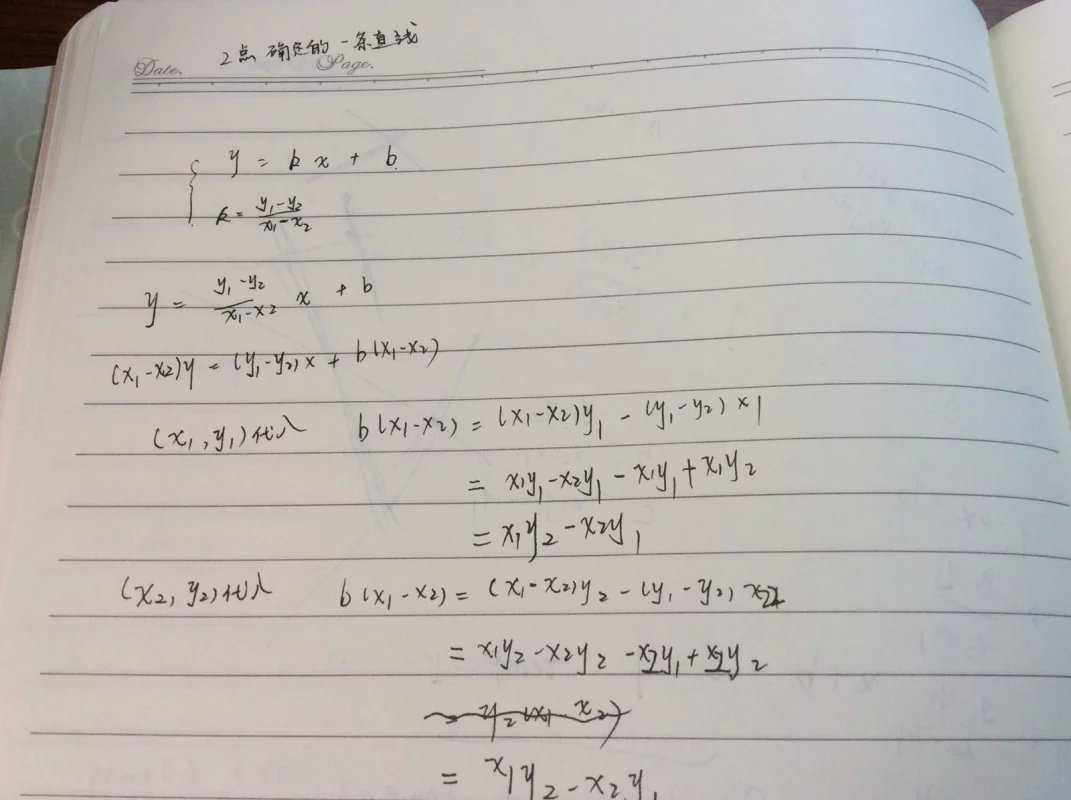 2点 确定的 一条直线
Date. Page.
y = kx + b
k = \frac{y₁-y₂}{x₁-x₂}
y = \frac{y₁-y₂}{x₁-x₂} x + b
(x₁-x₂)y = (y₁-y₂)x + b(x₁-x₂)
(x₁,y₁)代入 b(x₁-x₂) = (x₁-x₂)y₁ - (y₁-y₂)x₁
= x₁y₁-x₂y₁-x₁y₁+x₁y₂
= x₁y₂-x₂y₁
(x₂,y₂)代入 b(x₁-x₂) = (x₁-x₂)y₂-(y₁-y₂)x₂
= x₁y₂-x₂y₂-x₂y₁+x₂y₂
= x₁y₂-x₂y₁